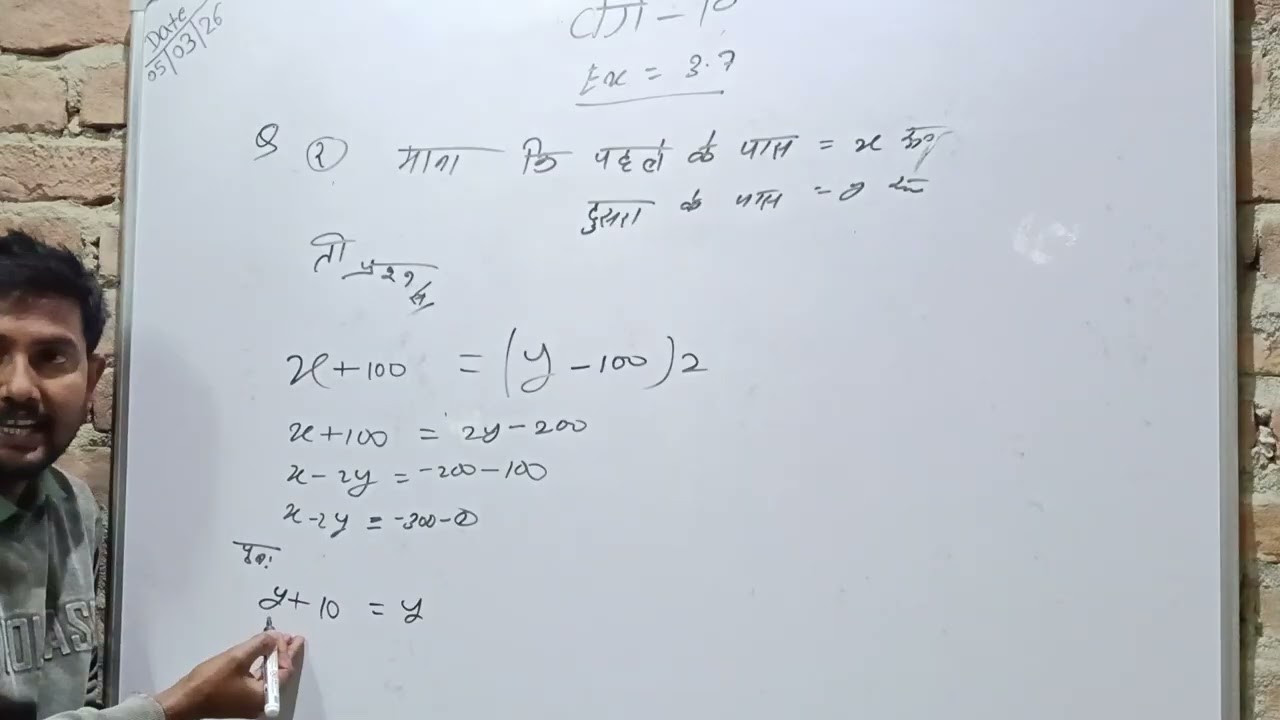 Date
05/03/26
वर्ग - 10
Ex = 3.7
Q ② माना कि पहले के पास = x रू
दुसरा के पास = y रू
तो प्रश्न से
x + 100 = (y - 100) 2
x + 100 = 2y - 200
x - 2y = -200 - 100
x - 2y = -300 - ①
पुनः
y + 10 = y